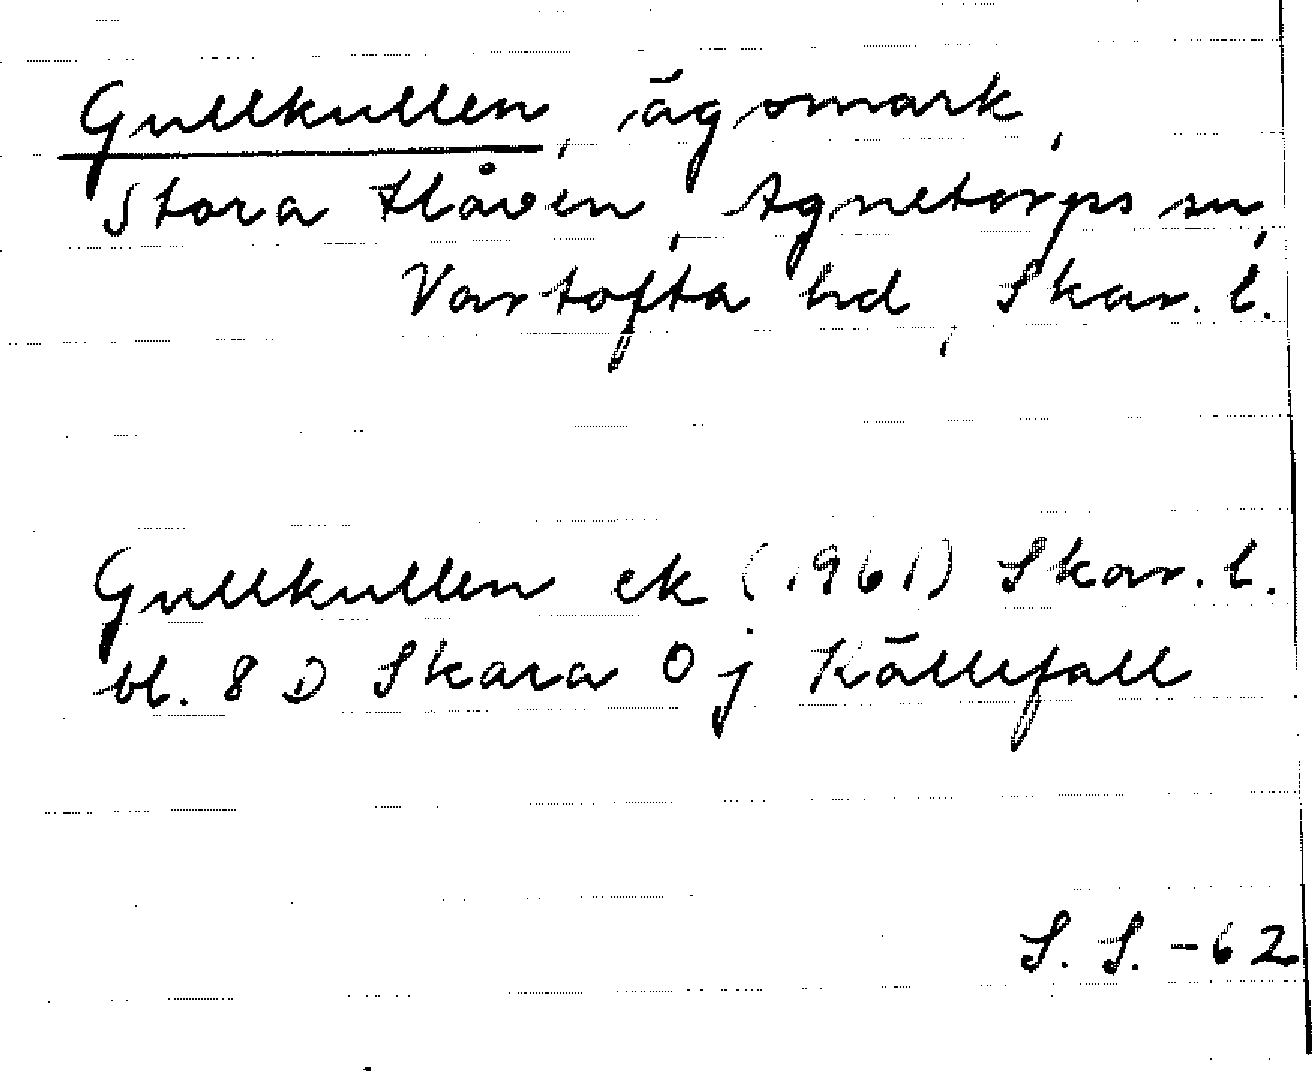 Gullkullen, ägomark,
Stora Flåvén, Agnetorps sn,
Vartofta hd, Skar. l.
Gullkullen ek (1961) Skar. l.
bl. 8 D Skara 0 j Källefall
S. S. -62